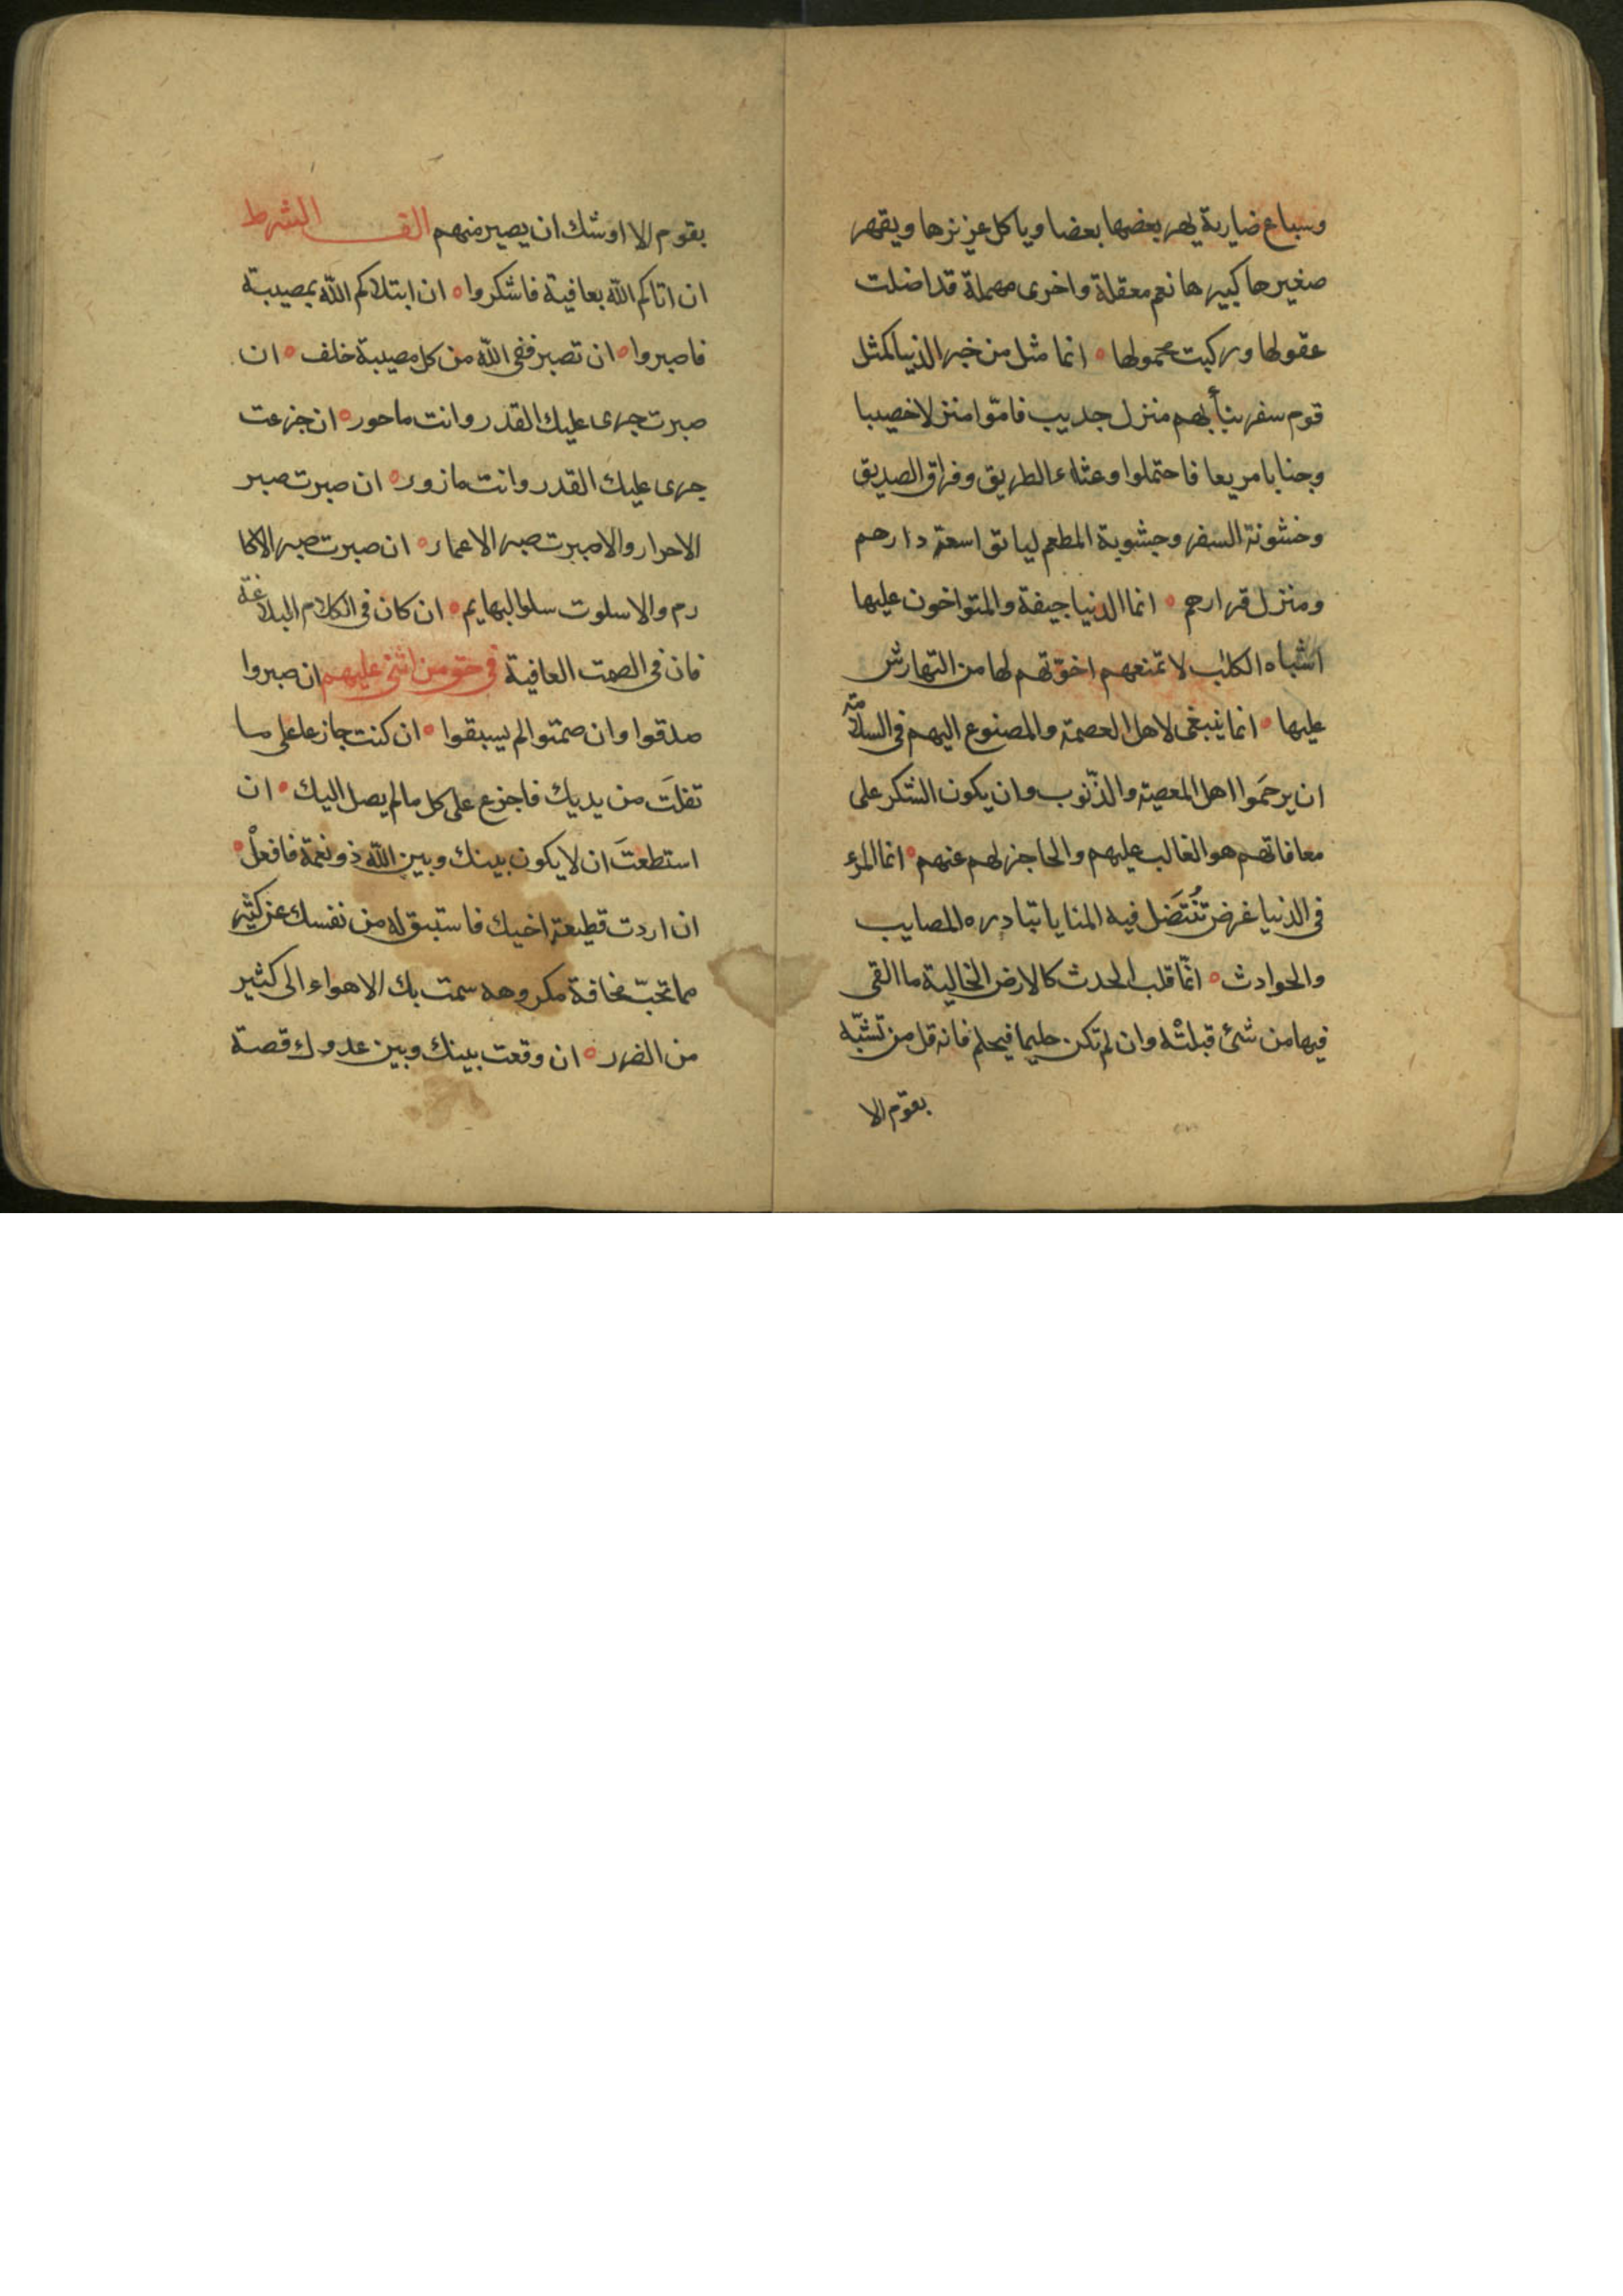 وسباع ضارية يهر بعضها بعضا وياكل عزيزها ويقهر
صغيرها كبيرها نعم معقلة واخرى مهملة قد اضلت
عقولها وركبت مجمولها ه انما مثل من خبر الدنيا كمثل
قوم سفر نبأ بهم منزل جديب فامّوا منزلا خصيبا
وجنابا مريعا فاحتملوا وعثاء الطريق وفراق الصديق
وخشونة السفر وجشوبة المطعم لياتوا سعة دارهم
ومنزل قرارهم ه انما الدنيا جيفة والمتواخون عليها
اشباه الكلب لا تمنعهم اخوّتهم لها من التهارش
عليها ه انما ينبغى لاهل العصمة والمصنوع اليهم فى السلامة
ان يرحَموا اهل المعصية والذّنوب وان يكون الشكر على
معافاتهم هو الغالب عليهم والحاجز لهم عنهم ه انما المرء
فى الدنيا غرض تُنْتَضَل فيه المنايا تبادره المصايب
والحوادث ه انّما قلب الحدث كالارض الخالية ما القى
فيها من شئ قبلتْه وان لم تكن حليما فيحلم فانه قل من تشبّه
بقوم الا
بقوم الا اوشك ان يصير منهم الف الشرط
ان اتاكم الله بعافية فاشكروا ه ان ابتلاكم الله بمصيبة
فاصبروا ه ان تصبر ففى الله من كل مصيبة خلف ه ان
صبرت جرى عليك القدر وانت ماجور ه ان جزعت
جرى عليك القدر وانت مازور ه ان صبرت صبر
الاحرار والا صبرت صبر الاغمار ه ان صبرت صبر الاكا
رم والا سلوت سلوا لبهايم ه ان كان فى الكلام البلاغة
فان فى الصمت العافية فى حق من اثنى عليهم ان صبروا
صدقوا وان صمتوا لم يسبقوا ه ان كنت جازعا على ما
تفلَت من يديك فاجزع على كل ما لم يصل اليك ه ان
استطعتَ ان لا يكون بينك وبين الله ذو نعمة فافعلْ ه
ان اردت قطيعة اخيك فاستبق له من نفسك عن كثير
مما تحبّ مخافة مكروهه سمت بك الاهواء الى كثير
من الضرر ه ان وقعت بينك وبين عدوك قصة